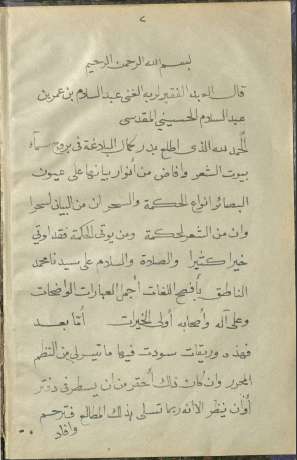 ٢
بسم الله الرحمن الرحيم
قال العبد الفقير لربه الغني عبد السلام بن عمر بن
عبد السلام الحسيني المقدسي
الحمد لله الذي اطلع بدر كمال البلاغة في بروج سماء
بيوت الشعر وافاض من أنوار بيانها على عيون
البصائر انواع الحكمة والسحر ان من البيان لسحرا
وان من الشعر لحكمة ومن يوتى الحكمة فقد اوتي
خيرا كثيرا والصلاة والسلام على سيدنا محمد
الناطق بأفصح اللغات أجمل العبارات الواضحات
وعلى آله وأصحابه أولى الخيرات أما بعد
فهذه وريقات سودت فيها ما تيسر لي من النظم
المحرر وان كان ذلك أحقر من أن يسطر في دفتر
أو أن ينظر الا انه ربما تسلى بذلك المطالع فترحم
وافاد